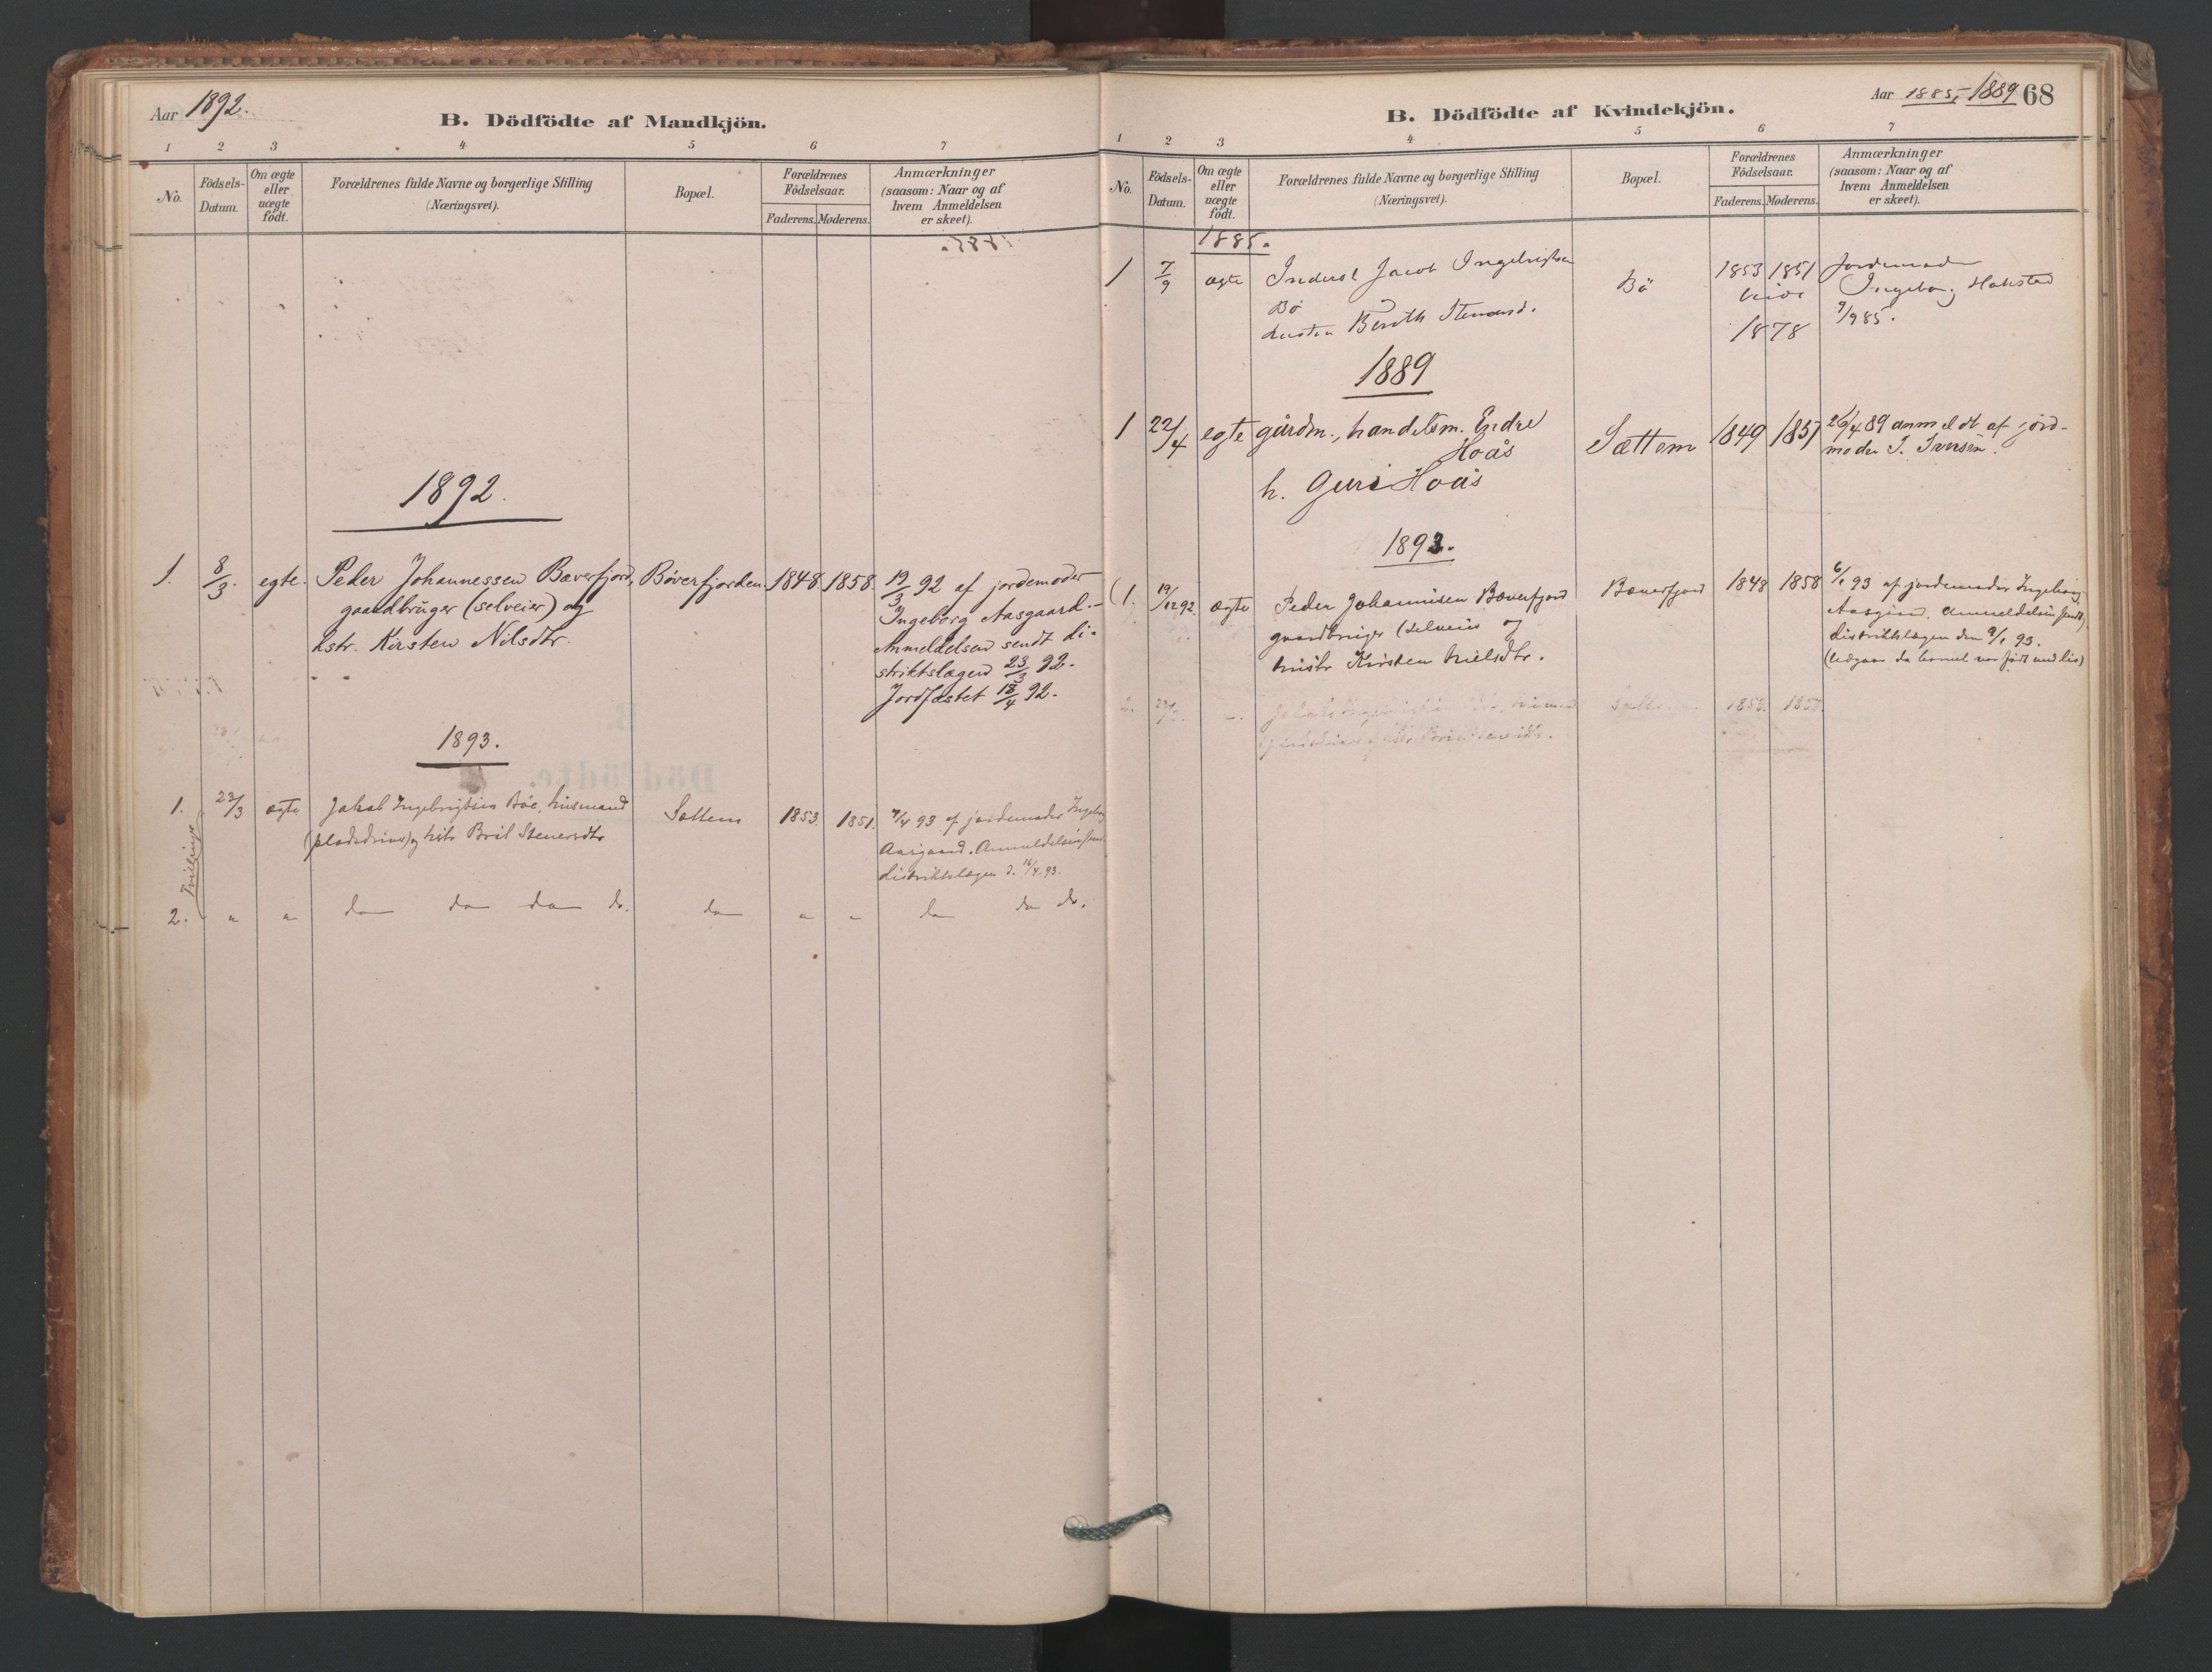 Aar 1892.
B. Dödfödte af Mandkjön.
1 2 3 4 5 6 7
No.
Födsels-Datum.
Om ægte eller uægte födt.
Forældrenes fulde Navne og borgerlige Stilling
(Næringsvei).
Bopæl.
Forældrenes Födselsaar.
Faderens. Moderens.
Anmærkninger
(saasom: Naar og af
hvem Anmeldelsen
er skeet).
1892.
1. 8/3. egte. Peder Johannessen Bæverfjord, Bøverfjorden. 1848. 1858. 19/3 92 af jordemoder
gaardbruger (selveier) og Ingeborg Aasgaard.-
hstr. Kirsten Nilsdtr. Anmeldelsen sendt di-
striktslægen 23/3 92.
Jordfæstet 18/4 92.
1893.
1. 23/3 ægte Jakob Ingebrigtsen Bøe, husmand Sættem 1853. 1851. 7/4 93 af jordemoder Ingeborg
(pladsdreng) og hstr Brit Steinersdtr Aasgaard. Anmeldelsen sendt
distriktslægen d. 16/4.93.
Tvillinger
2. " " do do do do. do " " do do do.
Aar 1885, 1889 68
B. Dödfödte af Kvindekjön.
1 2 3 4 5 6 7
No.
Födsels-Datum.
Om ægte eller uægte födt.
Forældrenes fulde Navne og borgerlige Stilling
(Næringsvei).
Bopæl.
Forældrenes Födselsaar.
Faderens. Moderens.
Anmærkninger
(saasom: Naar og af
hvem Anmeldelsen
er skeet).
1885.
1 7/9 ægte Inderst Jacob Ingebrigtsen Bö 1853 1851 Jordemoder
Bö Ingeborg
Hustru Beroth 1878 9/9 85.
1889
1 22/4 egte gårdm., handelsm. Endre Sættem 1849 1851 26/4 89 anmeldt af jord-
Hoås moder I. Iversen.
h. Guri Hoås
1893.
(1. 19/12 92. ægte Peder Johannesen Bæverfjord Bæverfjord 1848 1858 6/1 93 af jordemoder Ingeborg
gaardbruger (selveier og Aasgaard. Anmeldelsen sendt
hustr Kirsten Nielsdtr. distriktslægen den 9/1 93.
(Udgaar da barnet var født med liv)
2. 1853. 1851.